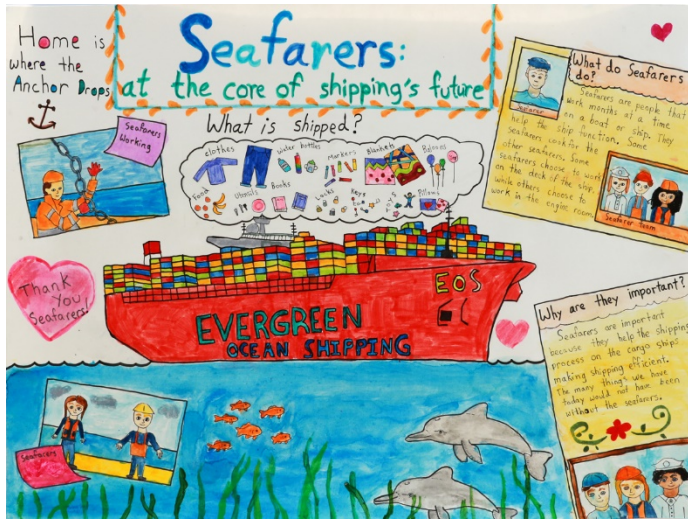 Home is
where the
Anchor Drops
Seafarers:
at the core of shipping's future
What is shipped?
clothes
water bottles
Markers
Blankets
Baloons
Food
Utensils
Books
Locks
Keys
Pillows
Seafarers
Working
What do Seafarers
do?
Seafarer
Seafarers are people that
work months at a time
on a boat or ship. They
help the ship function. Some
seafarers cook for the
other seafarers. Some
seafarers choose to work
on the deck of the ship,
while others choose to
work in the engine room.
Seafarer team
Thank
You
Seafarers!
EOS
EVERGREEN
OCEAN SHIPPING
Why are they important?
Seafarers are important
because they help the shipping
process on the cargo ships
making shipping efficient.
The many things we have
today would not have been
without the seafarers.
Seafarers